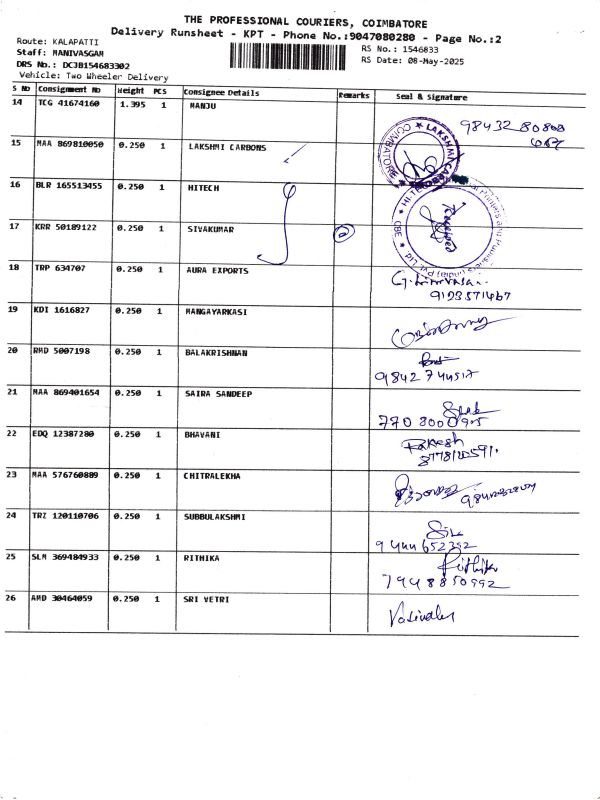 THE PROFESSIONAL COURIERS, COIMBATORE
Delivery Runsheet - KPT - Phone No.:9047080280 - Page No.:2
Route: KALAPATTI
RS No.: 1546833
Staff: MANIVASGAM
RS Date: 08-May-2025
DRS No.: DCJB154683302
Vehicle: Two Wheeler Delivery
S No Consignment No Weight PCS Consignee Details Remarks Seal & Signature
14 TCG 41674160 1.395 1 MANJU
15 MAA 869810050 0.250 1 LAKSHMI CARBONS
16 BLR 165513455 0.250 1 HITECH
17 KRR 50189122 0.250 1 SIVAKUMAR
18 TRP 634707 0.250 1 AURA EXPORTS
19 KDI 1616827 0.250 1 MANGAYARKASI
20 RMD 5007198 0.250 1 BALAKRISHNAN
21 MAA 869401654 0.250 1 SAIRA SANDEEP
22 EDQ 12387280 0.250 1 BHAVANI
Rakesh
23 MAA 576760889 0.250 1 CHITRALEKHA
24 TRZ 120110706 0.250 1 SUBBULAKSHMI
9444652352
25 SLM 369484933 0.250 1 RITHIKA
Rithika
7448850992
26 AMD 30464059 0.250 1 SRI VETRI